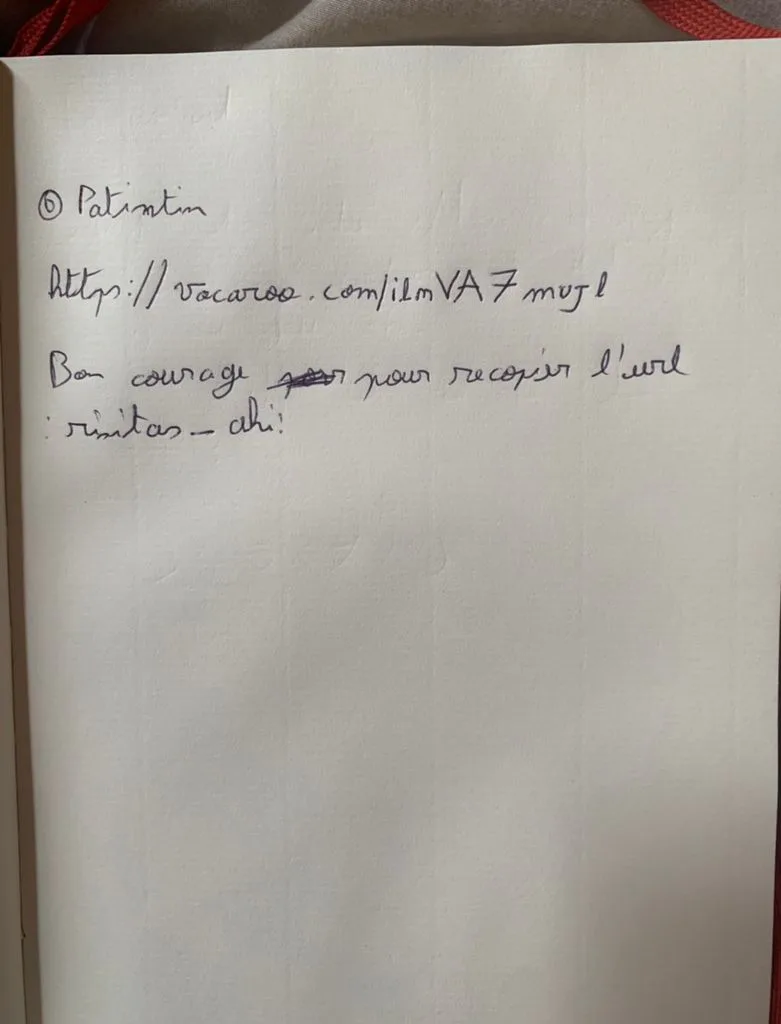 @ Patintin
https://vocaroo.com/i1mVA7mvJl
Bon courage pour recopier l'url
:risitas_ahi: